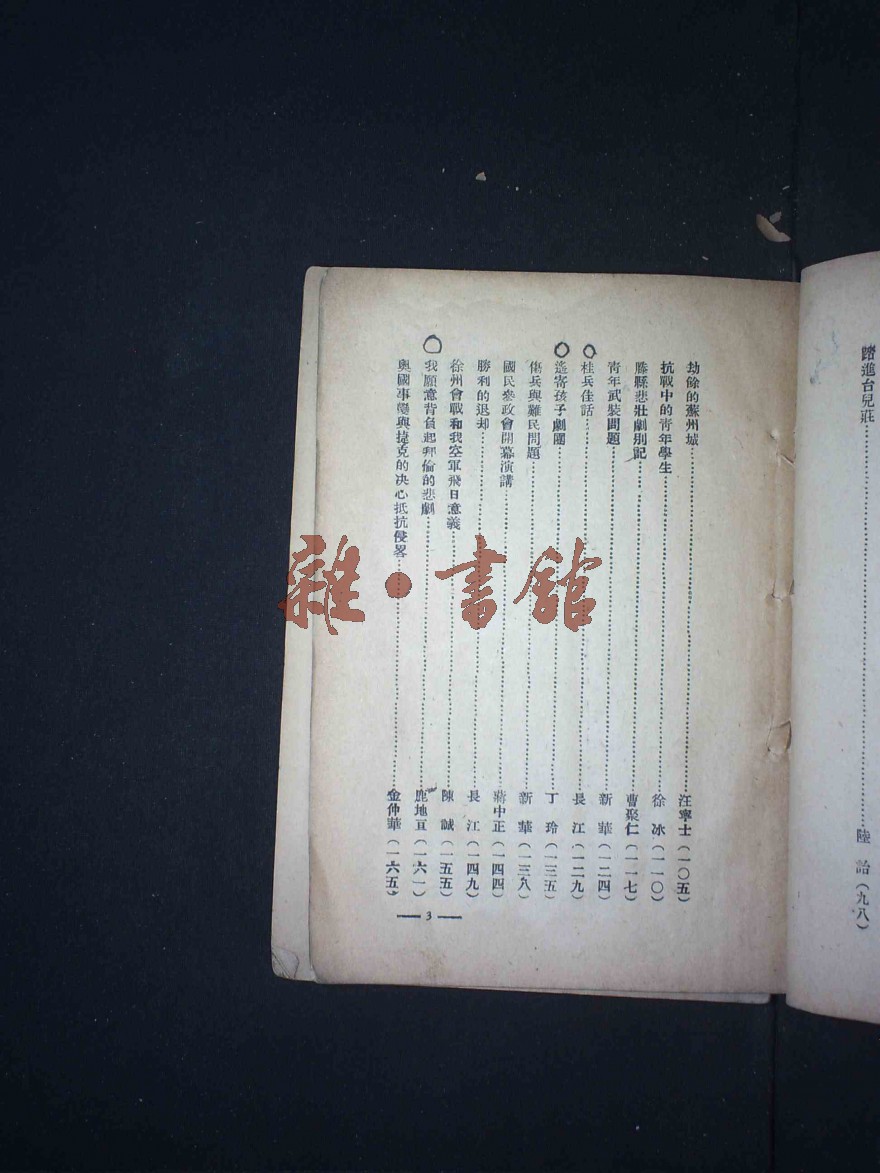 踏進台兒莊……陸　詒（九八）
劫餘的蘇州城……汪寧士（一〇五）
抗戰中的靑年學生……徐　冰（一一〇）
滕縣悲壯劇別記……曹聚仁（一一七）
靑年武裝問題……新　華（一二四）
桂兵佳話……長　江（一二九）
遙寄孩子劇團……丁　玲（一三五）
傷兵與難民問題……新　華（一三八）
國民參政會開幕演講……蔣中正（一四四）
勝利的退却……長　江（一四九）
徐州會戰和我空軍飛日意義……陳　誠（一五五）
我願意背負起拜倫的悲劇……鹿地亘（一六一）
奧國事變與捷克的决心抵抗侵畧……金仲華（一六五）
— 3 —
雜·書館